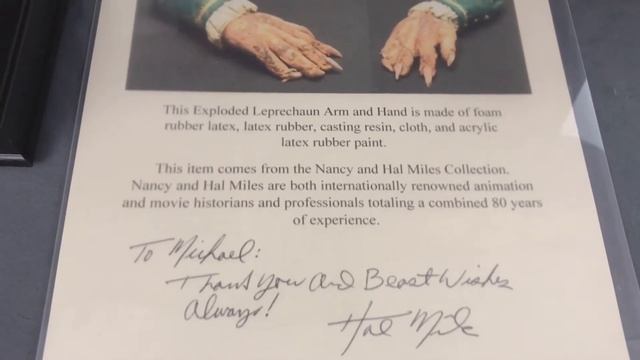 This Exploded Leprechaun Arm and Hand is made of foam
rubber latex, latex rubber, casting resin, cloth, and acrylic
latex rubber paint.
This item comes from the Nancy and Hal Miles Collection.
Nancy and Hal Miles are both internationally renowned animation
and movie historians and professionals totaling a combined 80 years
of experience.
To Michael:
Thank You and Beast Wishes
always!
Hal Miles